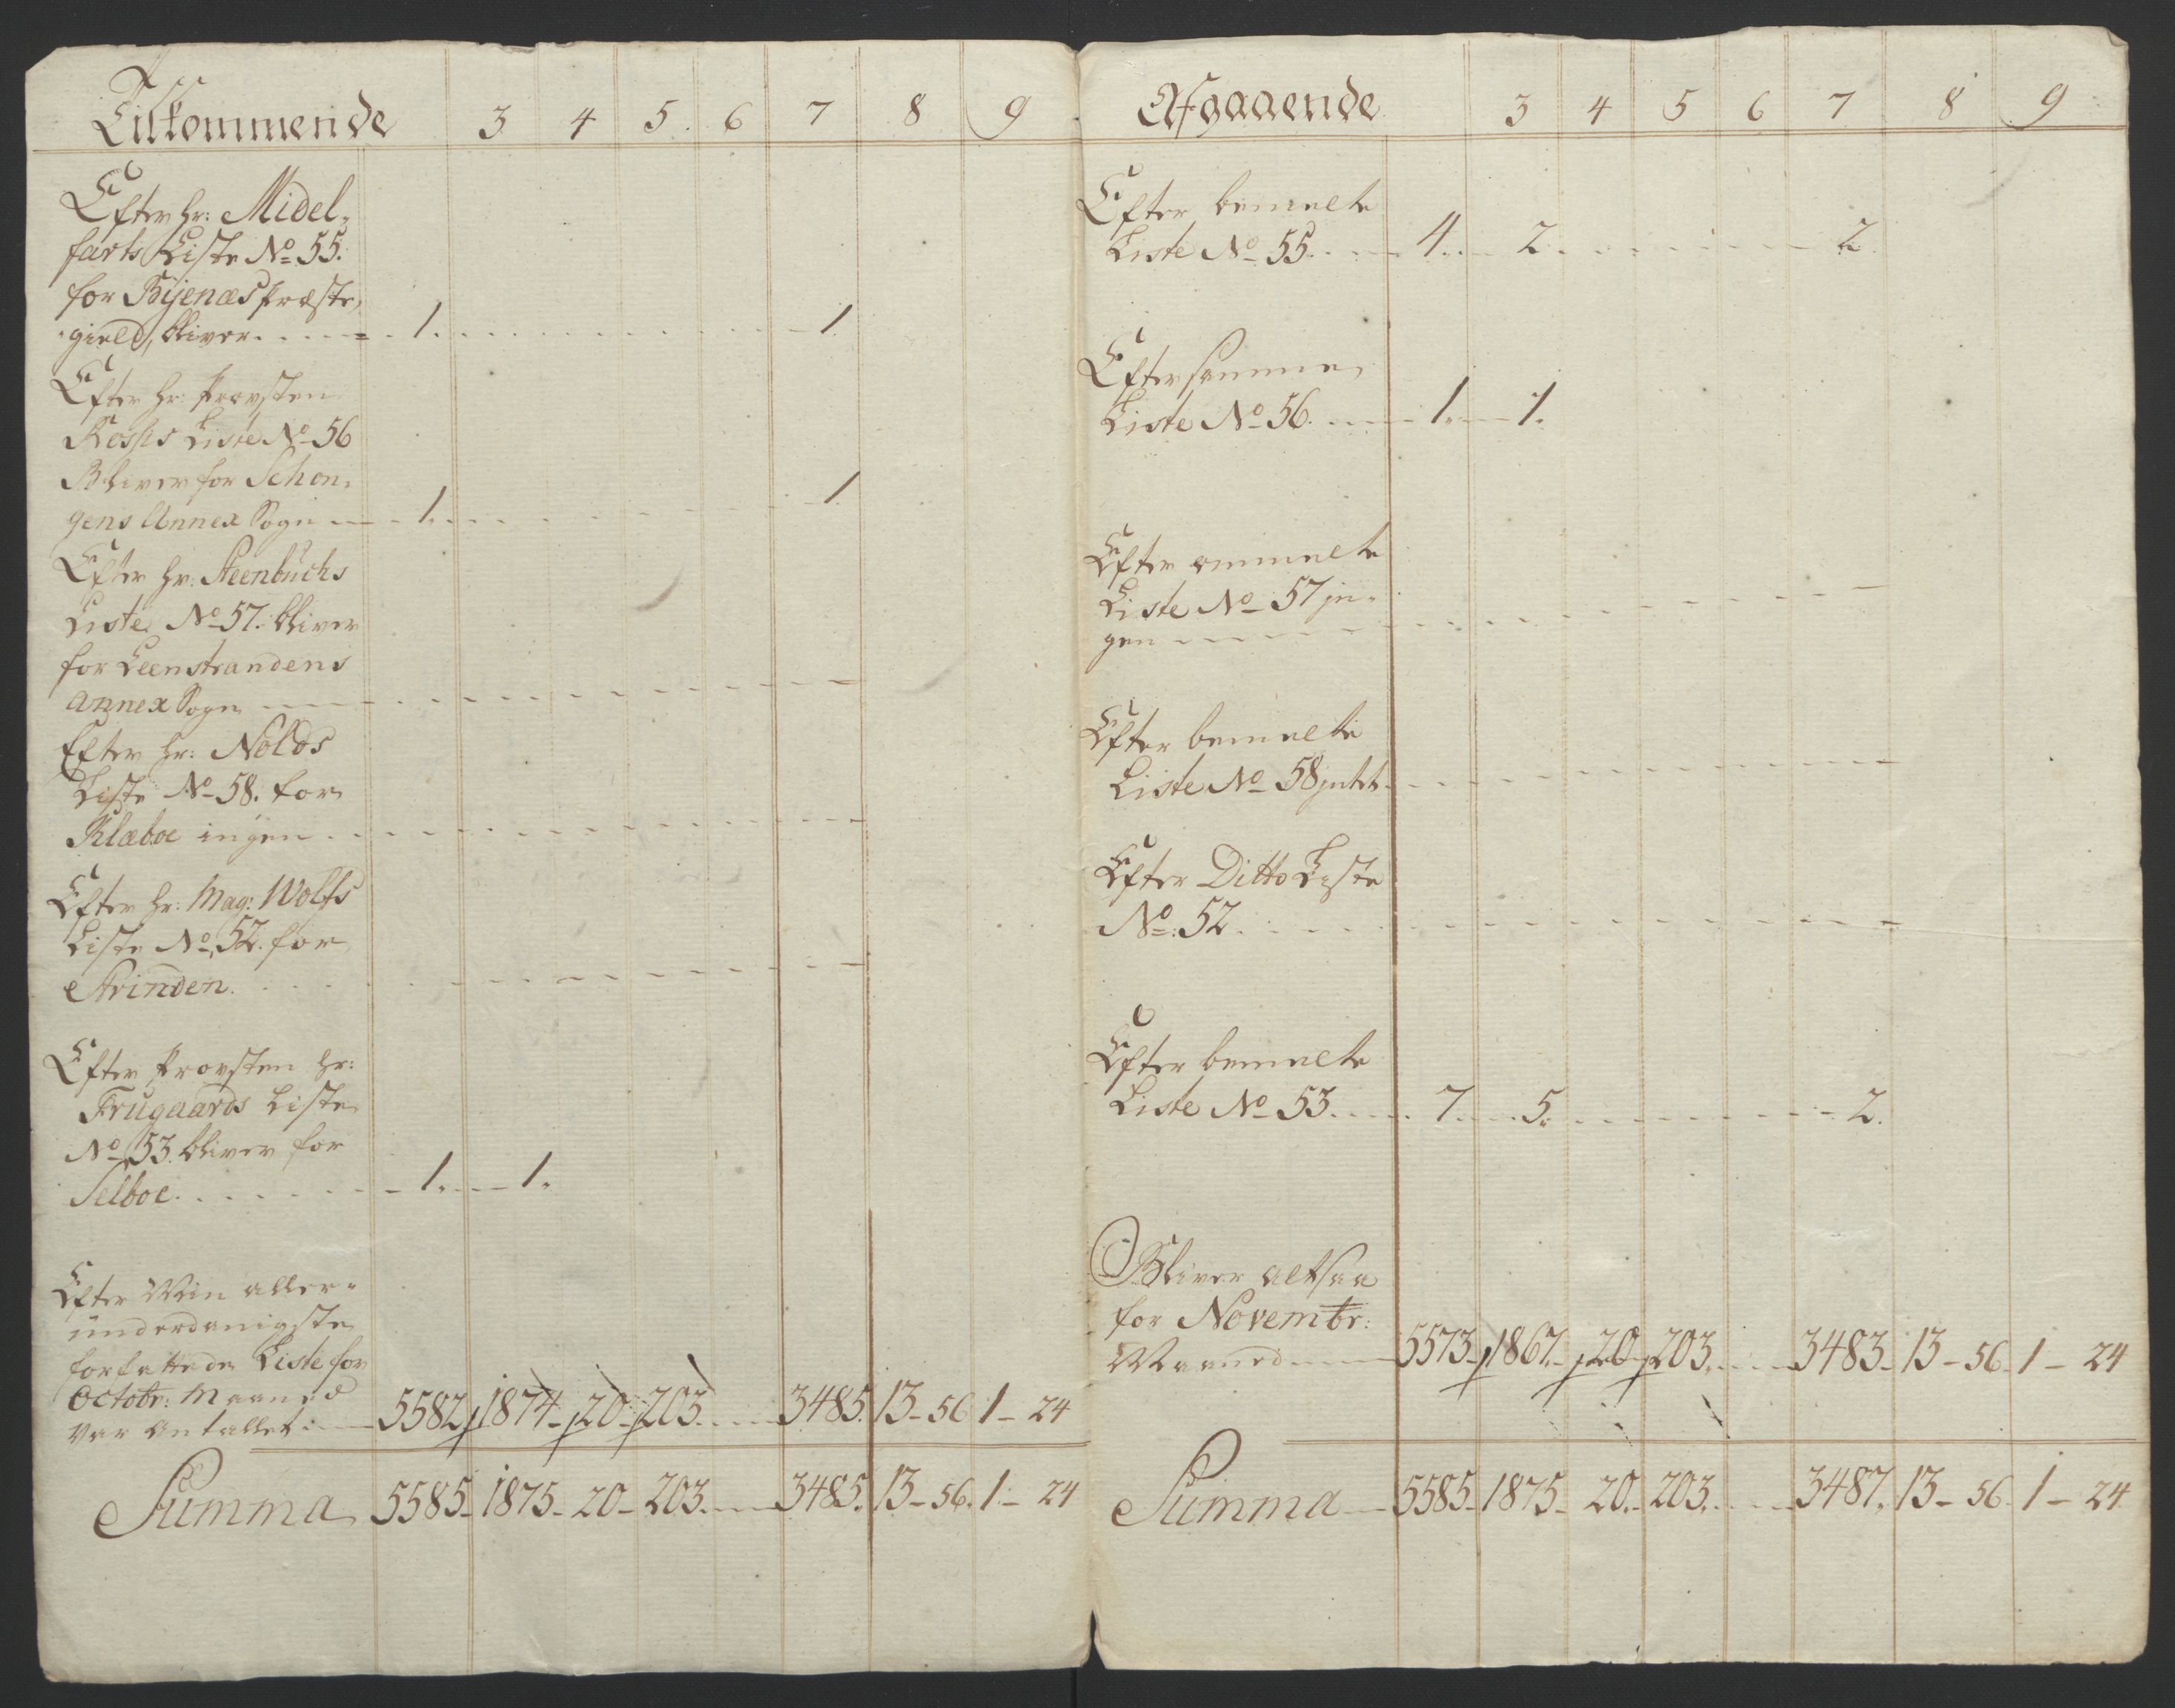 Tilkommende 3 4 5 6 7 8 9
Efter hr: Midel-
farts Liste No 55.
for Bijenæs Præste-
gield, bliver 1 1
Efter hr: Provsten
Liste No 56
Bliver for Schon-
gens Annex Sogn 1 1
Efter hr: Steenbuchs
Liste No 57. bliver
for Leenstrandens
Annex Sogn
Efter hr: Nolds
Liste No 58. for
Klæboe ingen
Efter hr: Mag: Wolfs
Liste No 52. for
Strinden.
Efter Provsten hr:
Frugaards Liste
No 53. bliver for
Selboe 1 1
Efter Min aller-
underdanigste
forfattede Liste for
Octobr: Maaned
var Antallet 5582 1874 20 203 3485. 13 - 56 1 - 24
Summa 5585 1875 20 203 3485. 13 - 56. 1 - 24
Afgaaende 3 4 5 6 7 8 9
Efter bemelte
Liste No 55. 4 2 2
Efter samme
Liste No 56. 1 1
Efter ommelte
Liste No 57 in-
gen
Efter bemelte
Liste No 58 intet
Efter Ditto Liste
No: 52.
Efter bemelte
Liste No 53. 7 5. 2.
Bliver altsaa
for Novembr:
Maaned 5573 1867 20 203. 3483 13 - 56. 1 - 24
Summa 5585 1875 20. 203. 3487. 13 - 56. 1 - 24